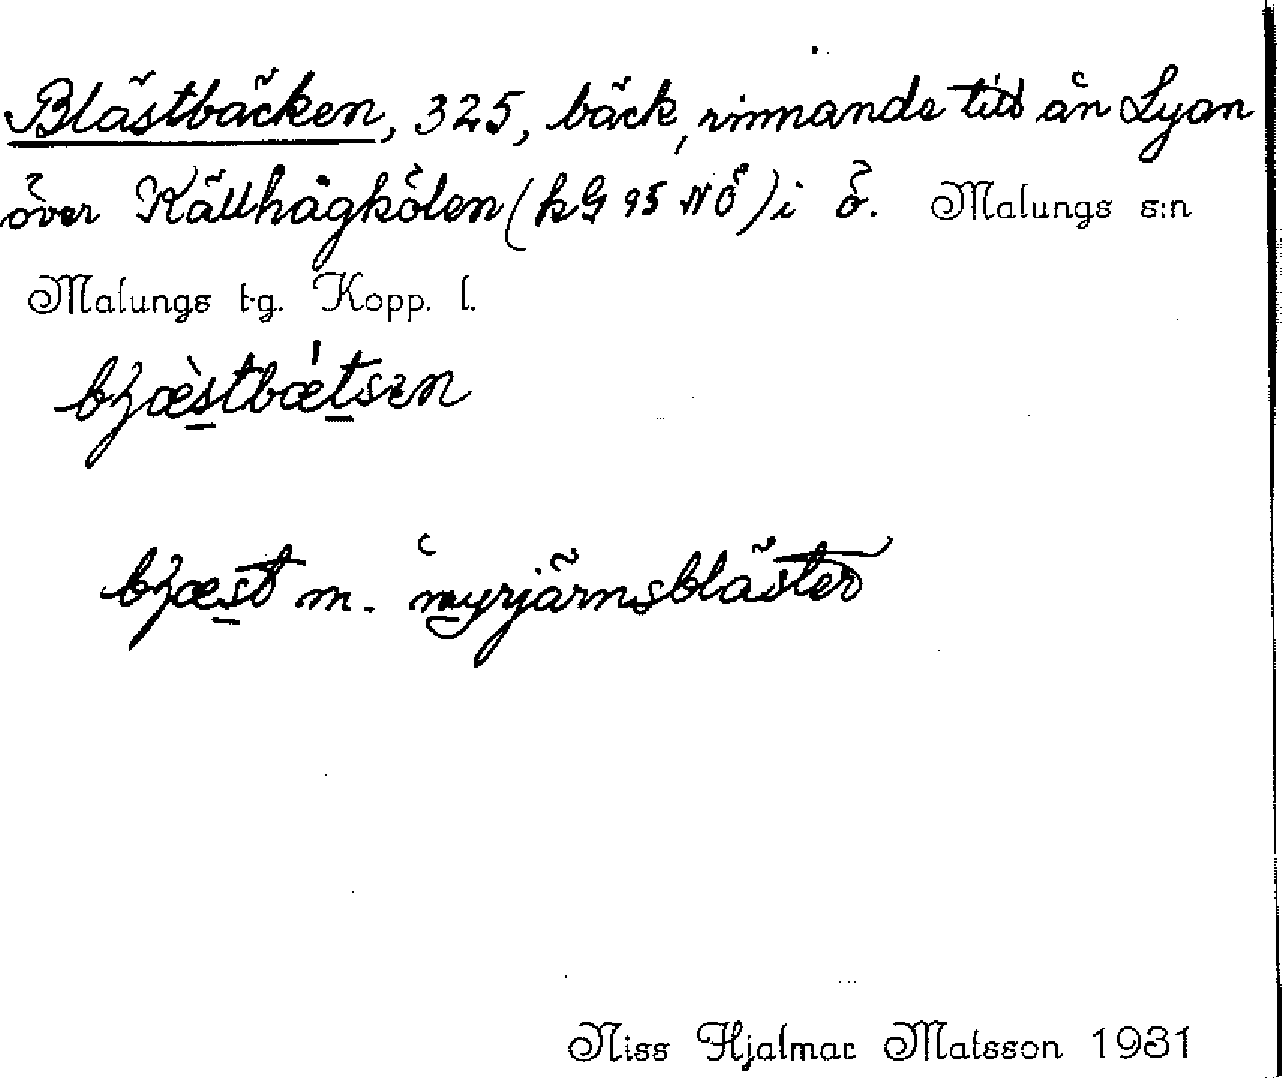 Blästbäcken, 325, bäck, rinnande till ån Lyan
över Källhågkölen (kG 95 NÖ) i ö. Malungs s:n
Malungs t-g. Kopp. l.
bʒæ̀stbǽtsɛn
bʒæst m. myrjärnsbläster
Niss Hjalmar Matsson 1931